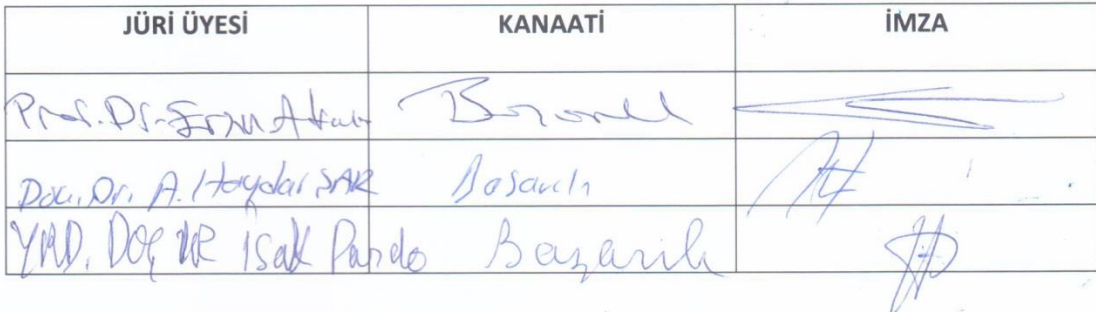 JÜRİ ÜYESİ KANAATİ İMZA
Prof. Dr. Akalı
Doç. Dr. A. Haydar ŞAR Başarılı
YRD. DOÇ DR İsak Pardo Başarılı